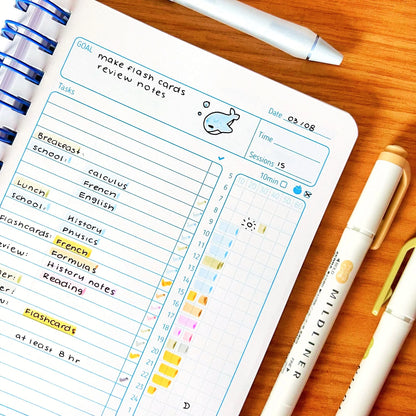 GOAL
make flash cards
review notes
Date 03/08
Time
Sessions 15
Tasks
10min
Breakfast
school:
calculus
French
English
Lunch
school:
History
Physics
Flashcards: French
Formulas
History notes
Reading
Flashcards
at least 8 hr
5
6
7
8
9
10
11
12
13
14
15
16
17
18
19
20
21
22
23
24
MILDLINER